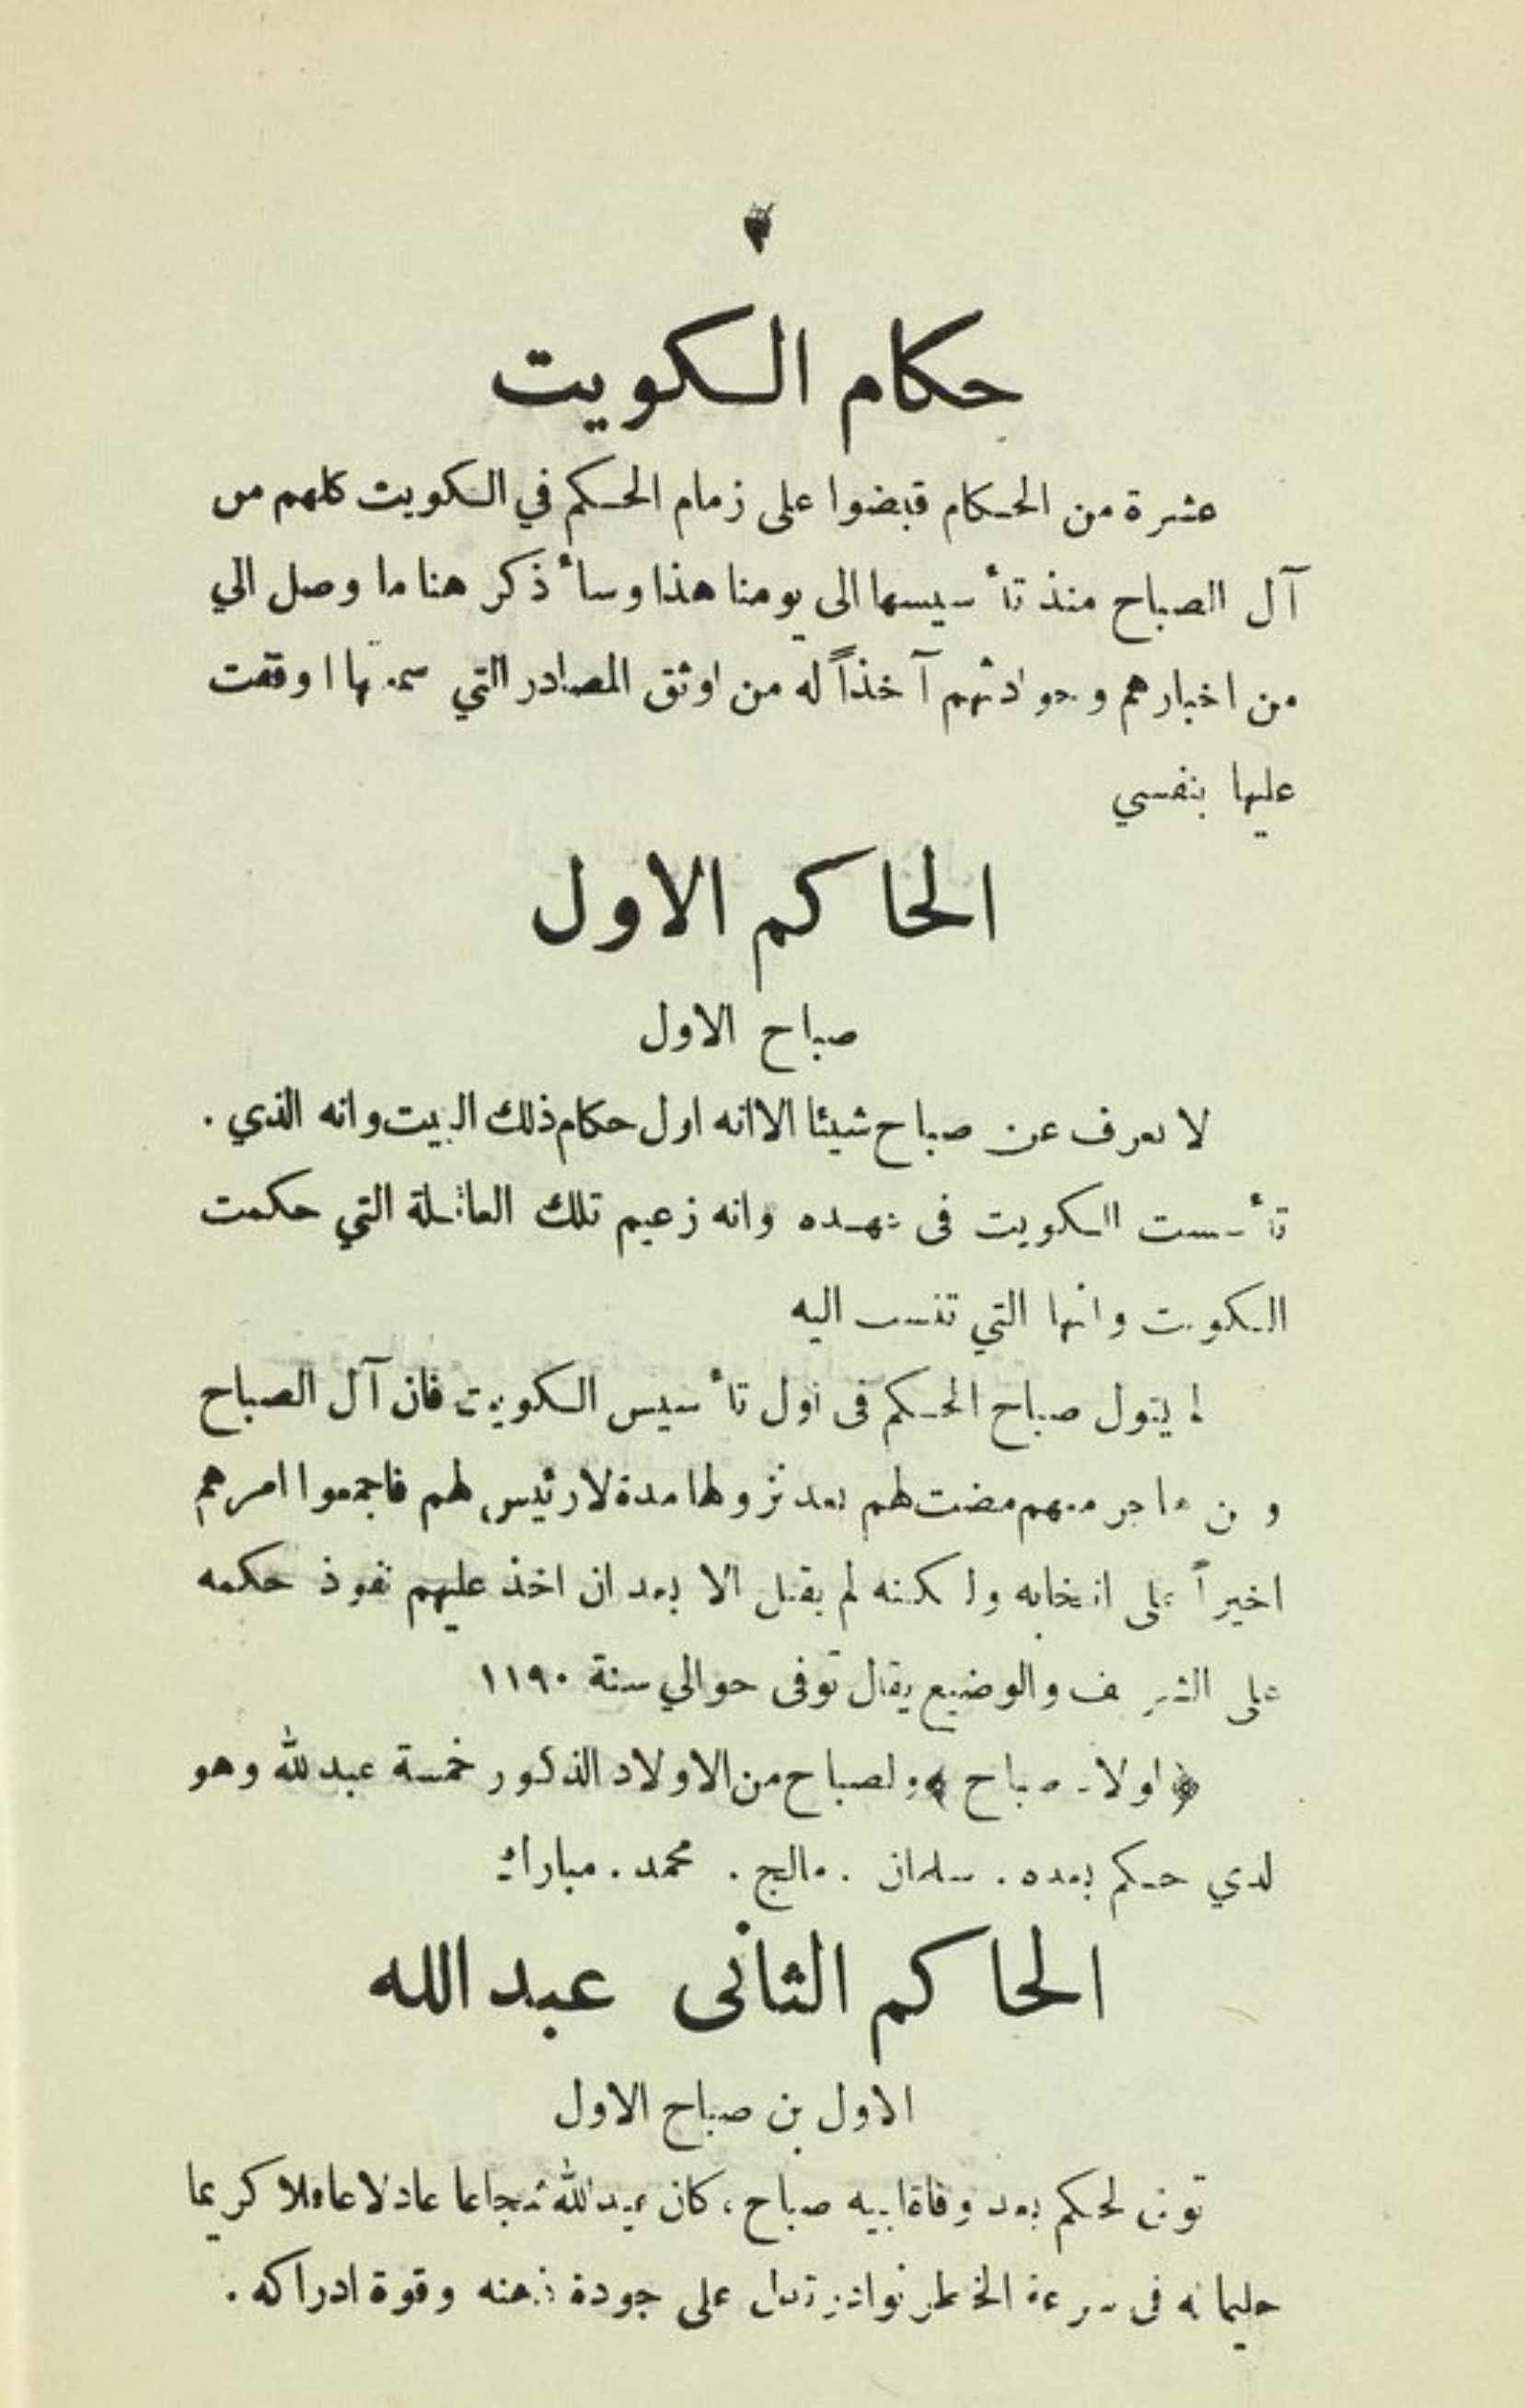 حكام الكويت
عشرة من الحكام قبضوا على زمام الحكم في الكويت كلهم من
آل الصباح منذ تأسيسها الى يومنا هذا وسأذكر هنا ما وصل الي
من اخبارهم وحوادثهم آخذاً له من اوثق المصادر التي سمعتها او وقفت
عليها بنفسي
الحاكم الاول
صباح الاول
لا نعرف عن صباح شيئا الا انه اول حكام ذلك البيت وانه الذي .
تأسست الكويت فى عهده وانه زعيم تلك العائلة التي حكمت
الكويت وانها التي تنسب اليه
لم يتول صباح الحكم فى اول تأسيس الكويت فان آل الصباح
ومن هاجر معهم مضت لهم بعد نزولها مدة لا رئيس لهم فاجمعوا امرهم
اخيراً على انتخابه ولكنه لم يقبل الا بعد ان اخذ عليهم نفوذ حكمه
على الشريف والوضيع يقال توفى حوالي سنة ١١٩٠
﴿اولاد صباح﴾ ولصباح من الاولاد الذكور خمسة عبد الله وهو
الذي حكم بعده . سلمان . مالج . محمد . مبارك
الحاكم الثانى عبد الله
الاول بن صباح الاول
تولى الحكم بعد وفاة ابيه صباح ، كان عبد الله شجاعا عادلا عاقلا كريما
حليما له فى سرعة الخاطر نوادر تدل على جودة ذهنه وقوة ادراكه .